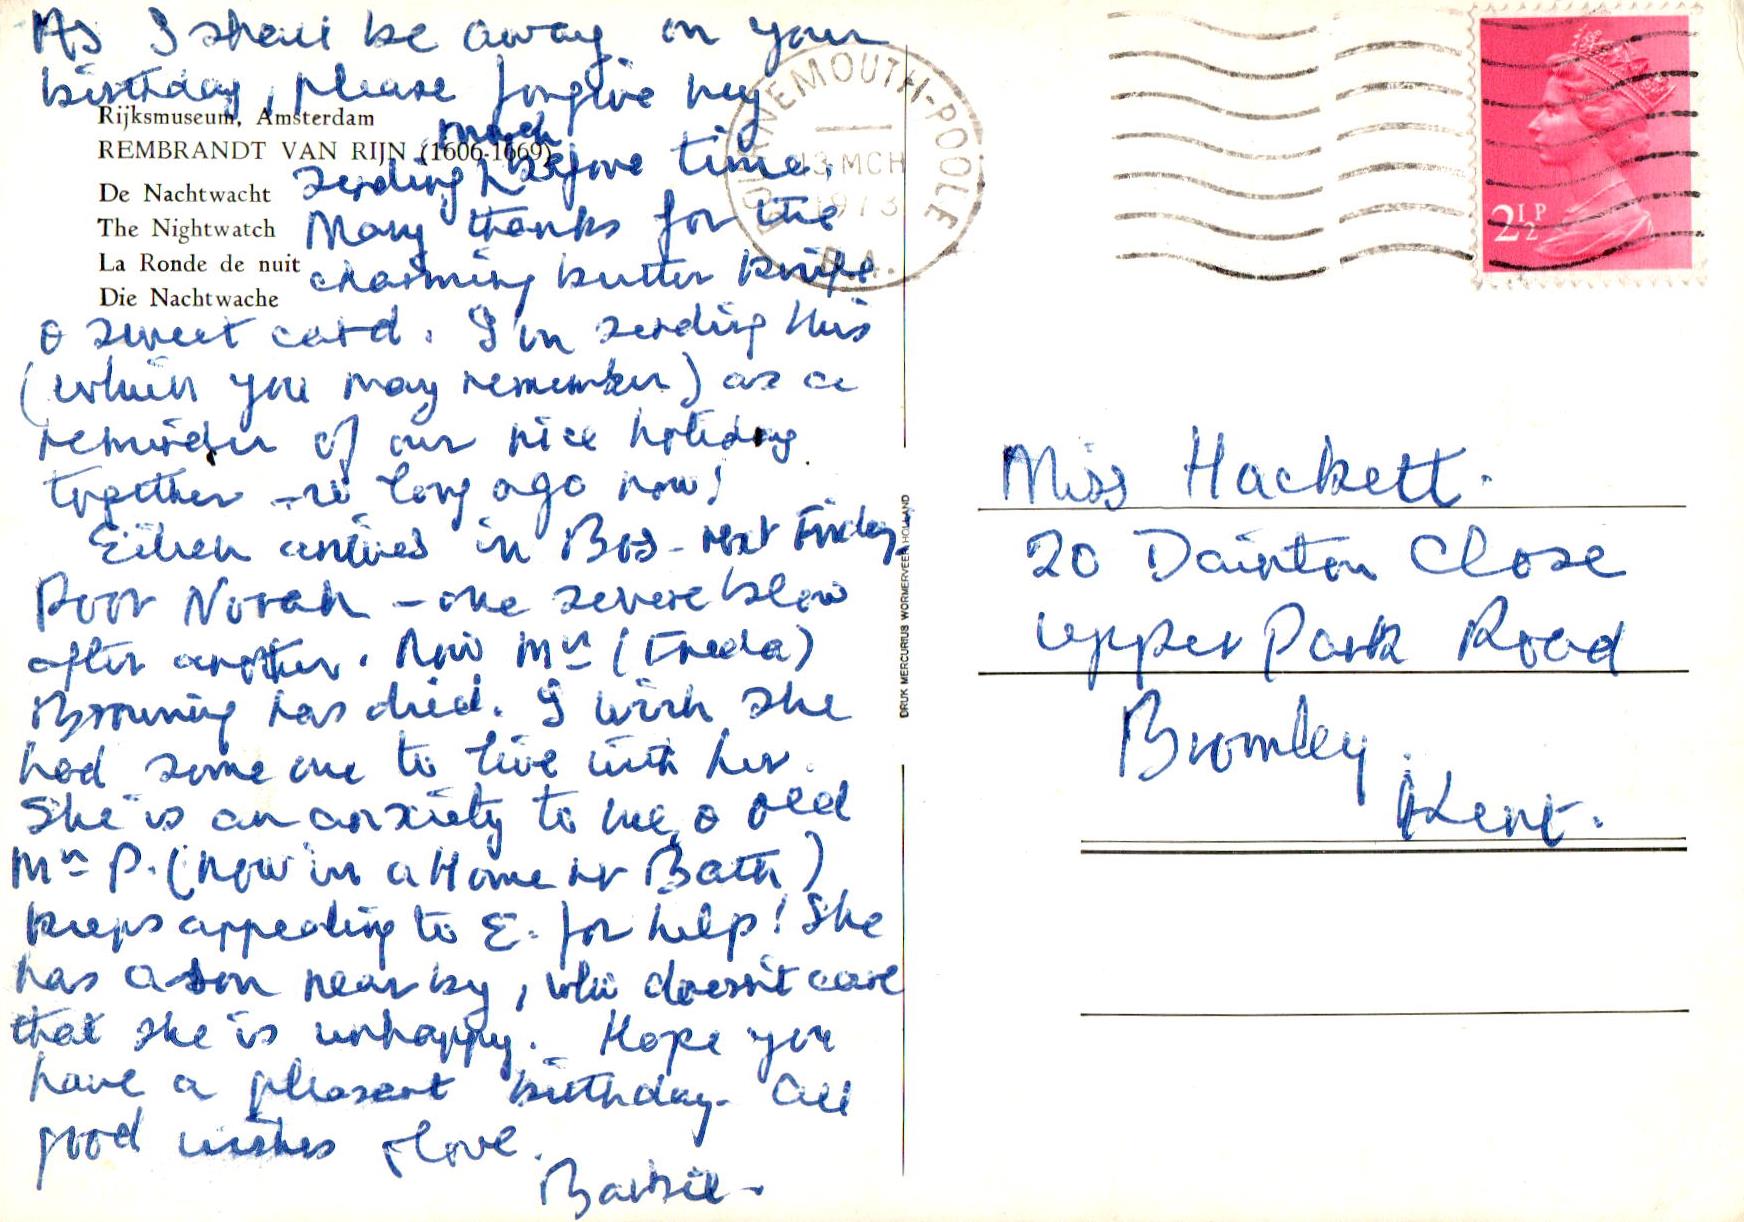 As I shall be away on your
birthday, please forgive my
sending much before time.
Many thanks for the
charming butter knife
& sweet card. I'm sending this
(which you may remember) as a
reminder of our nice holiday
together – so long ago now!
Eileen arrives in Bos– next Friday.
Poor Norah – one severe blow
after another. Now Mrs (Freda)
Browning has died. I wish she
had some one to live with her.
She is an anxiety to me & old
Mrs P. (now in a Home nr Bath)
keeps appealing to E. for help! She
has a son near by, who doesn't care
that she is unhappy. Hope you
have a pleasant birthday. All
good wishes & love.
Barbie.
Rijksmuseum, Amsterdam
REMBRANDT VAN RIJN (1606-1669)
De Nachtwacht
The Nightwatch
La Ronde de nuit
Die Nachtwache
DRUK MERCURIUS WORMERVEER HOLLAND
BOURNEMOUTH-POOLE
13 MCH
1973
A.
2½P
Miss Hackett.
20 Dainton Close
Upper Park Road
Bromley.
Kent.